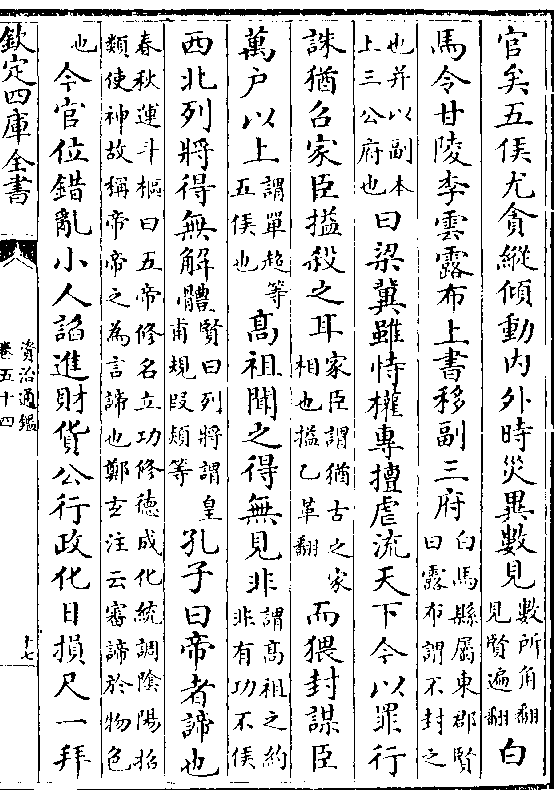 官矣五侯尤貪縱傾動内外時災異數見數所角翻見賢遍翻白
馬令甘陵李雲露布上書移副三府白馬縣屬東郡賢曰露布謂不封之
也并以副本上三公府也曰梁冀雖恃權專擅虐流天下今以罪行
誅猶召家臣搤殺之耳家臣謂猶古之家相也搤乙革翻而猥封謀臣
萬户以上謂單超等五侯也髙祖聞之得無見非謂髙祖之約非有功不侯
西北列將得無解體賢曰列將謂皇甫規段熲等孔子曰帝者諦也
春秋運斗樞曰五帝修名立功修德成化統調隂陽招類使神故稱帝帝之為言諦也鄭玄注云審諦於物色
也今官位錯亂小人諂進財貨公行政化日損尺一拜
欽定四庫全書
資治通鑑
卷五十四
十七